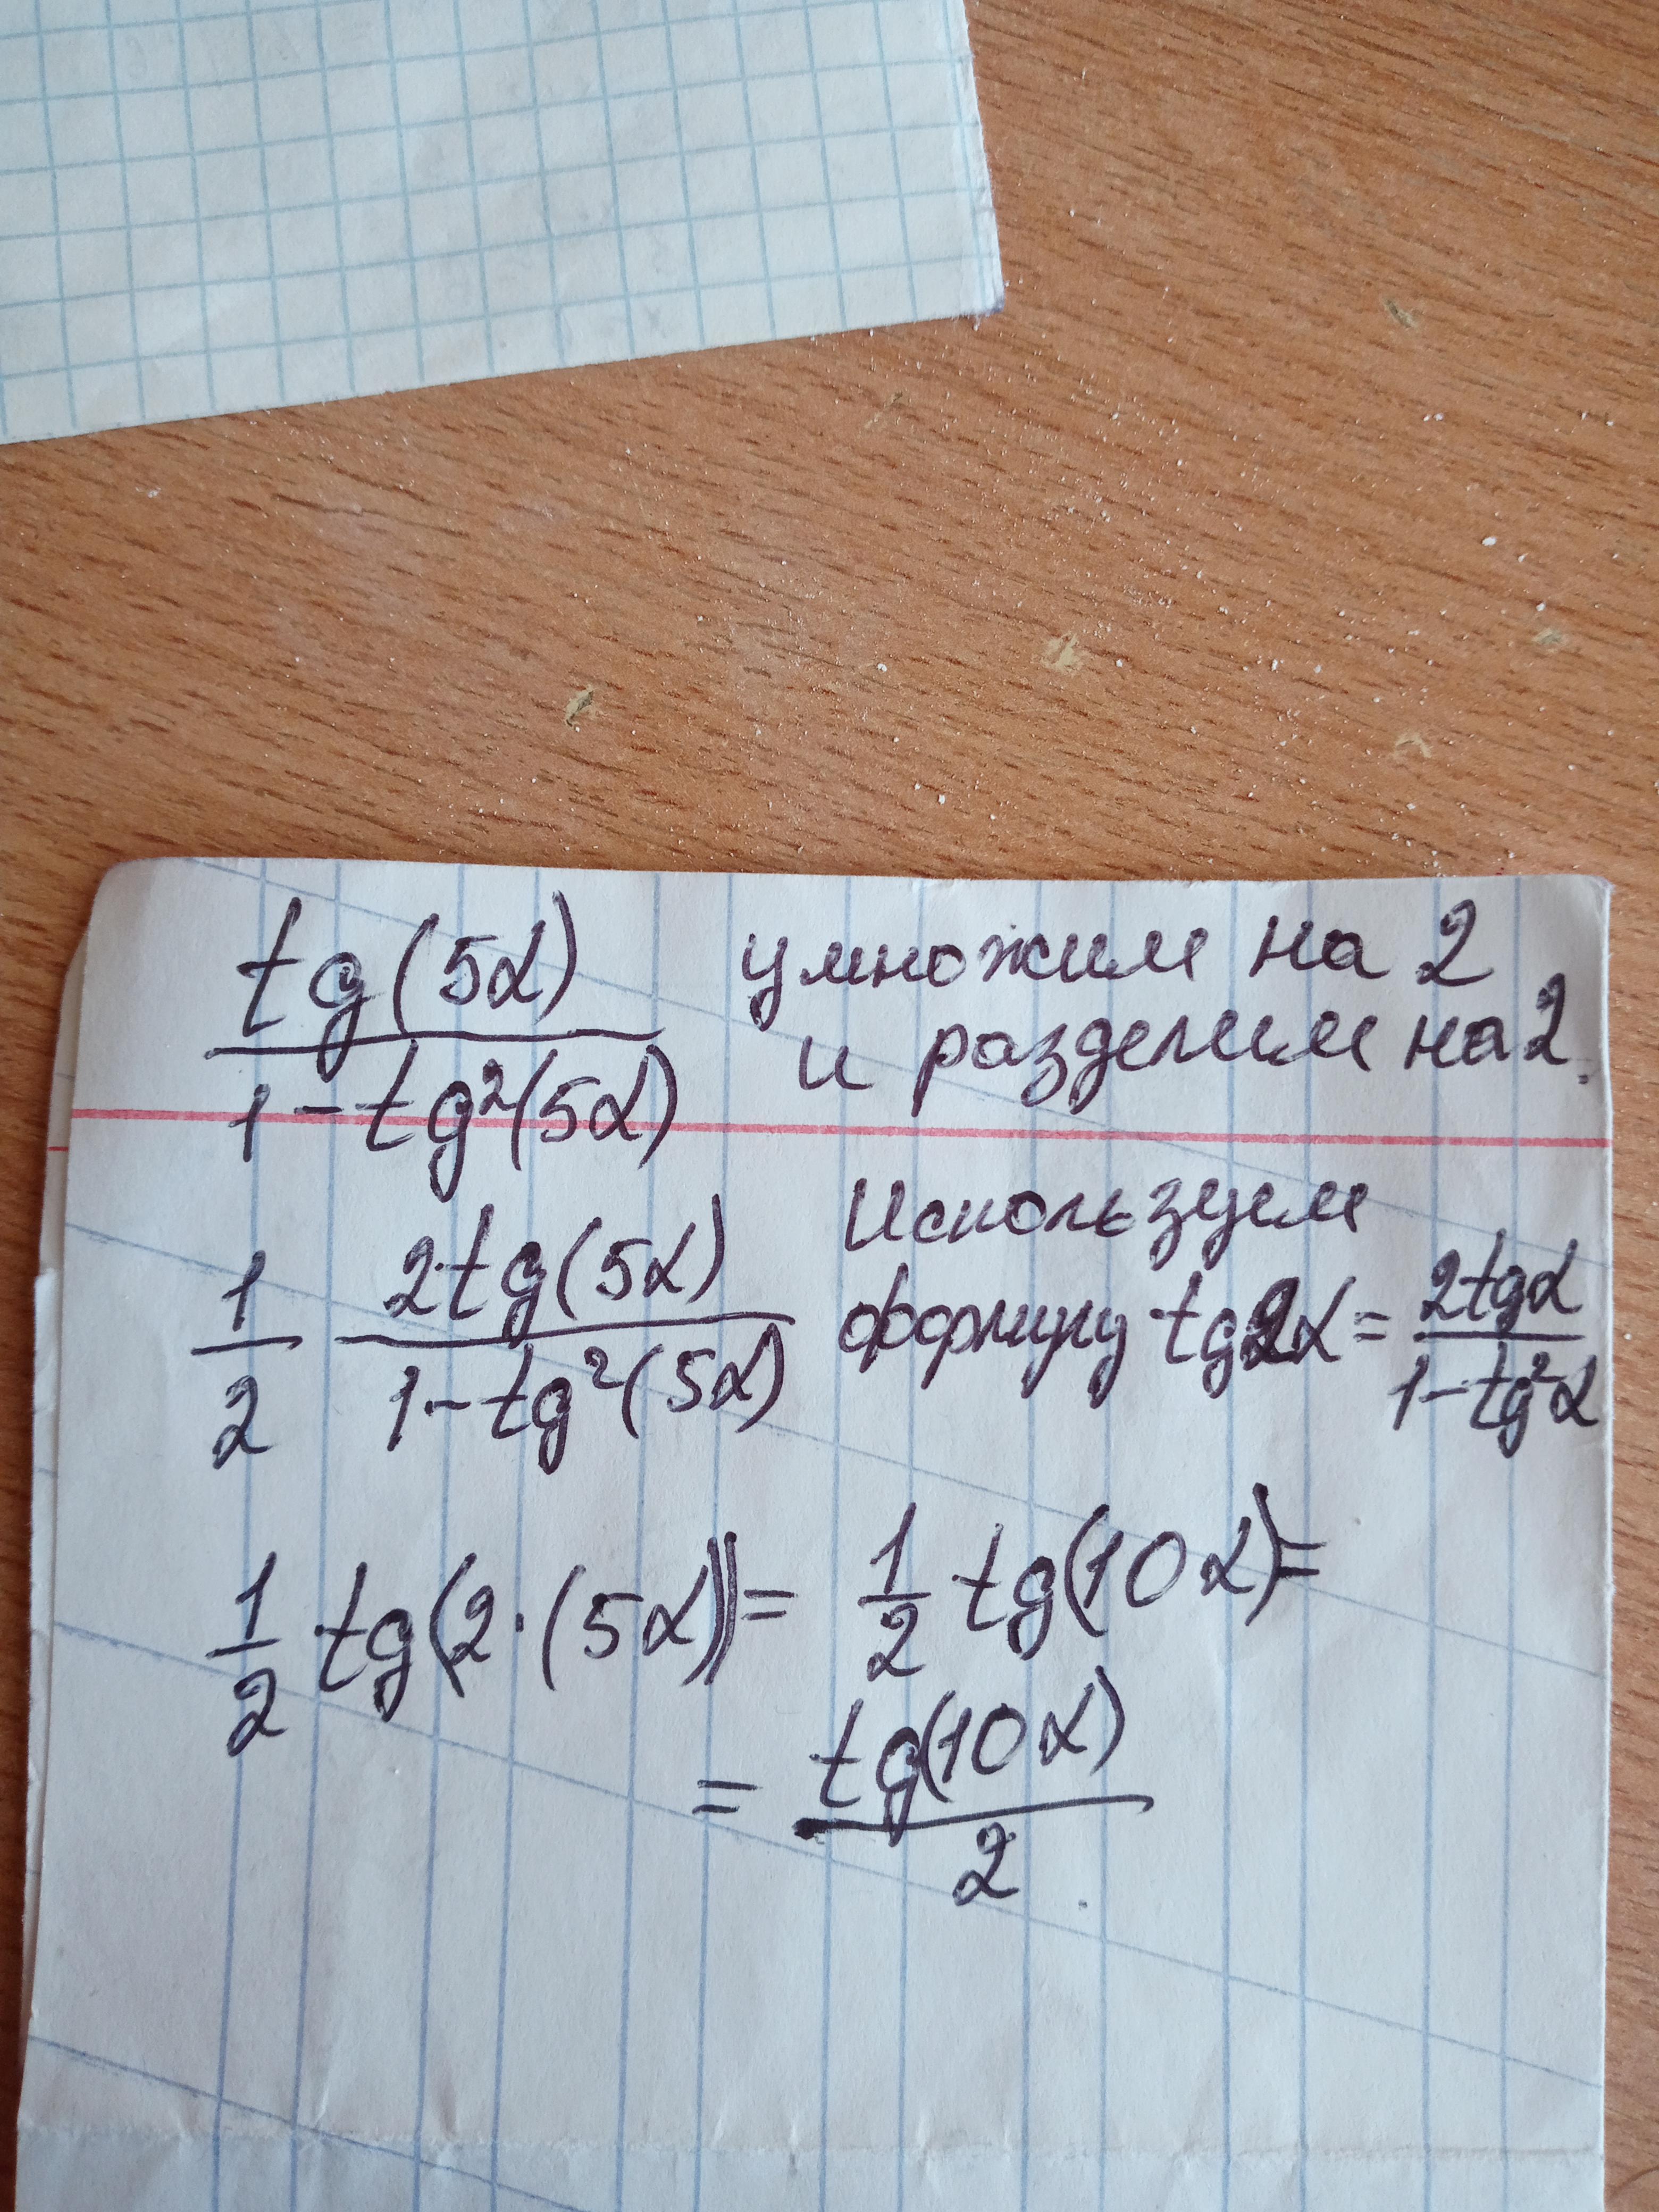 tg(5α) / 1-tg²(5α) умножим на 2
и разделим на 2.
1/2 2tg(5α) / 1-tg²(5α) Используем
формулу tg2α = 2tgα / 1-tg²α
1/2 tg(2·(5α)) = 1/2 tg(10α) =
= tg(10α) / 2